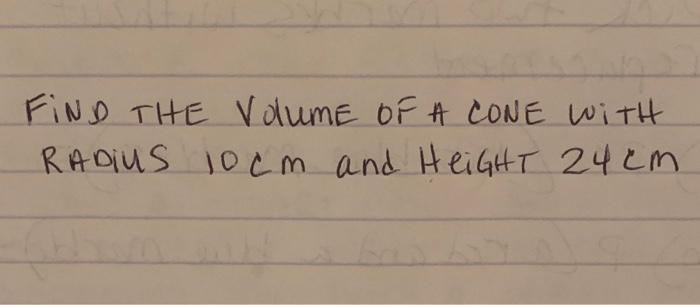 FIND THE VOLUME OF A CONE WITH
RADIUS 10cm and HEIGHT 24cm